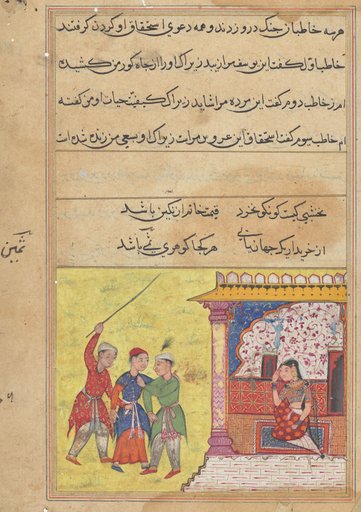 هر سه خاطبان جنک در زدند و همه دعوی استحقاق او کردن کرفتند
خاطب اول کفت این یوسف مرا رسد زیراک او را از چاه کور من کشیده
ام خاطب دوم کفت این مرده مرا شاید زیراک کیفیت حیات او من کفته
ام خاطب سیوم کفت استحقاق این عروس مراست زیراک او بسعی من زنده شده است
نخشبی کیست کو نکو نخرد
قیمت خانم از نکین باشد
از خریدار یک جهان یابی
هر کجا کوهری باشد
ثمین